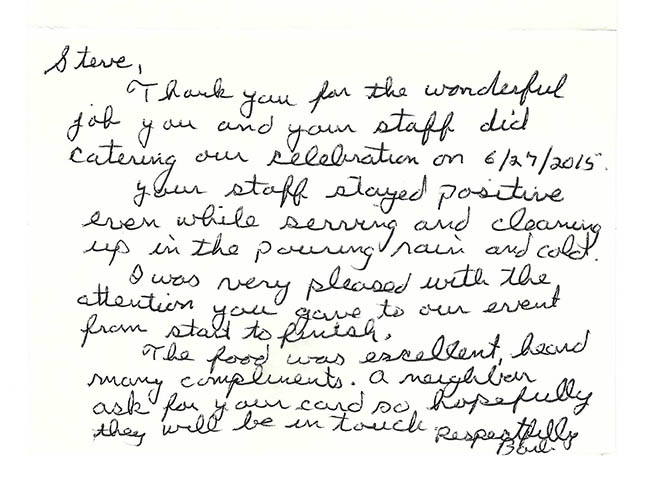 Steve,
Thank you for the wonderful
job you and your staff did
catering our celebration on 6/27/2015.
Your staff stayed positive
even while serving and cleaning
up in the pouring rain and cold.
I was very pleased with the
attention you gave to our event
from start to finish.
The food was excellent, heard
many compliments. A neighbor
ask for your card so hopefully
they will be in touch.
Respectfully
Barb